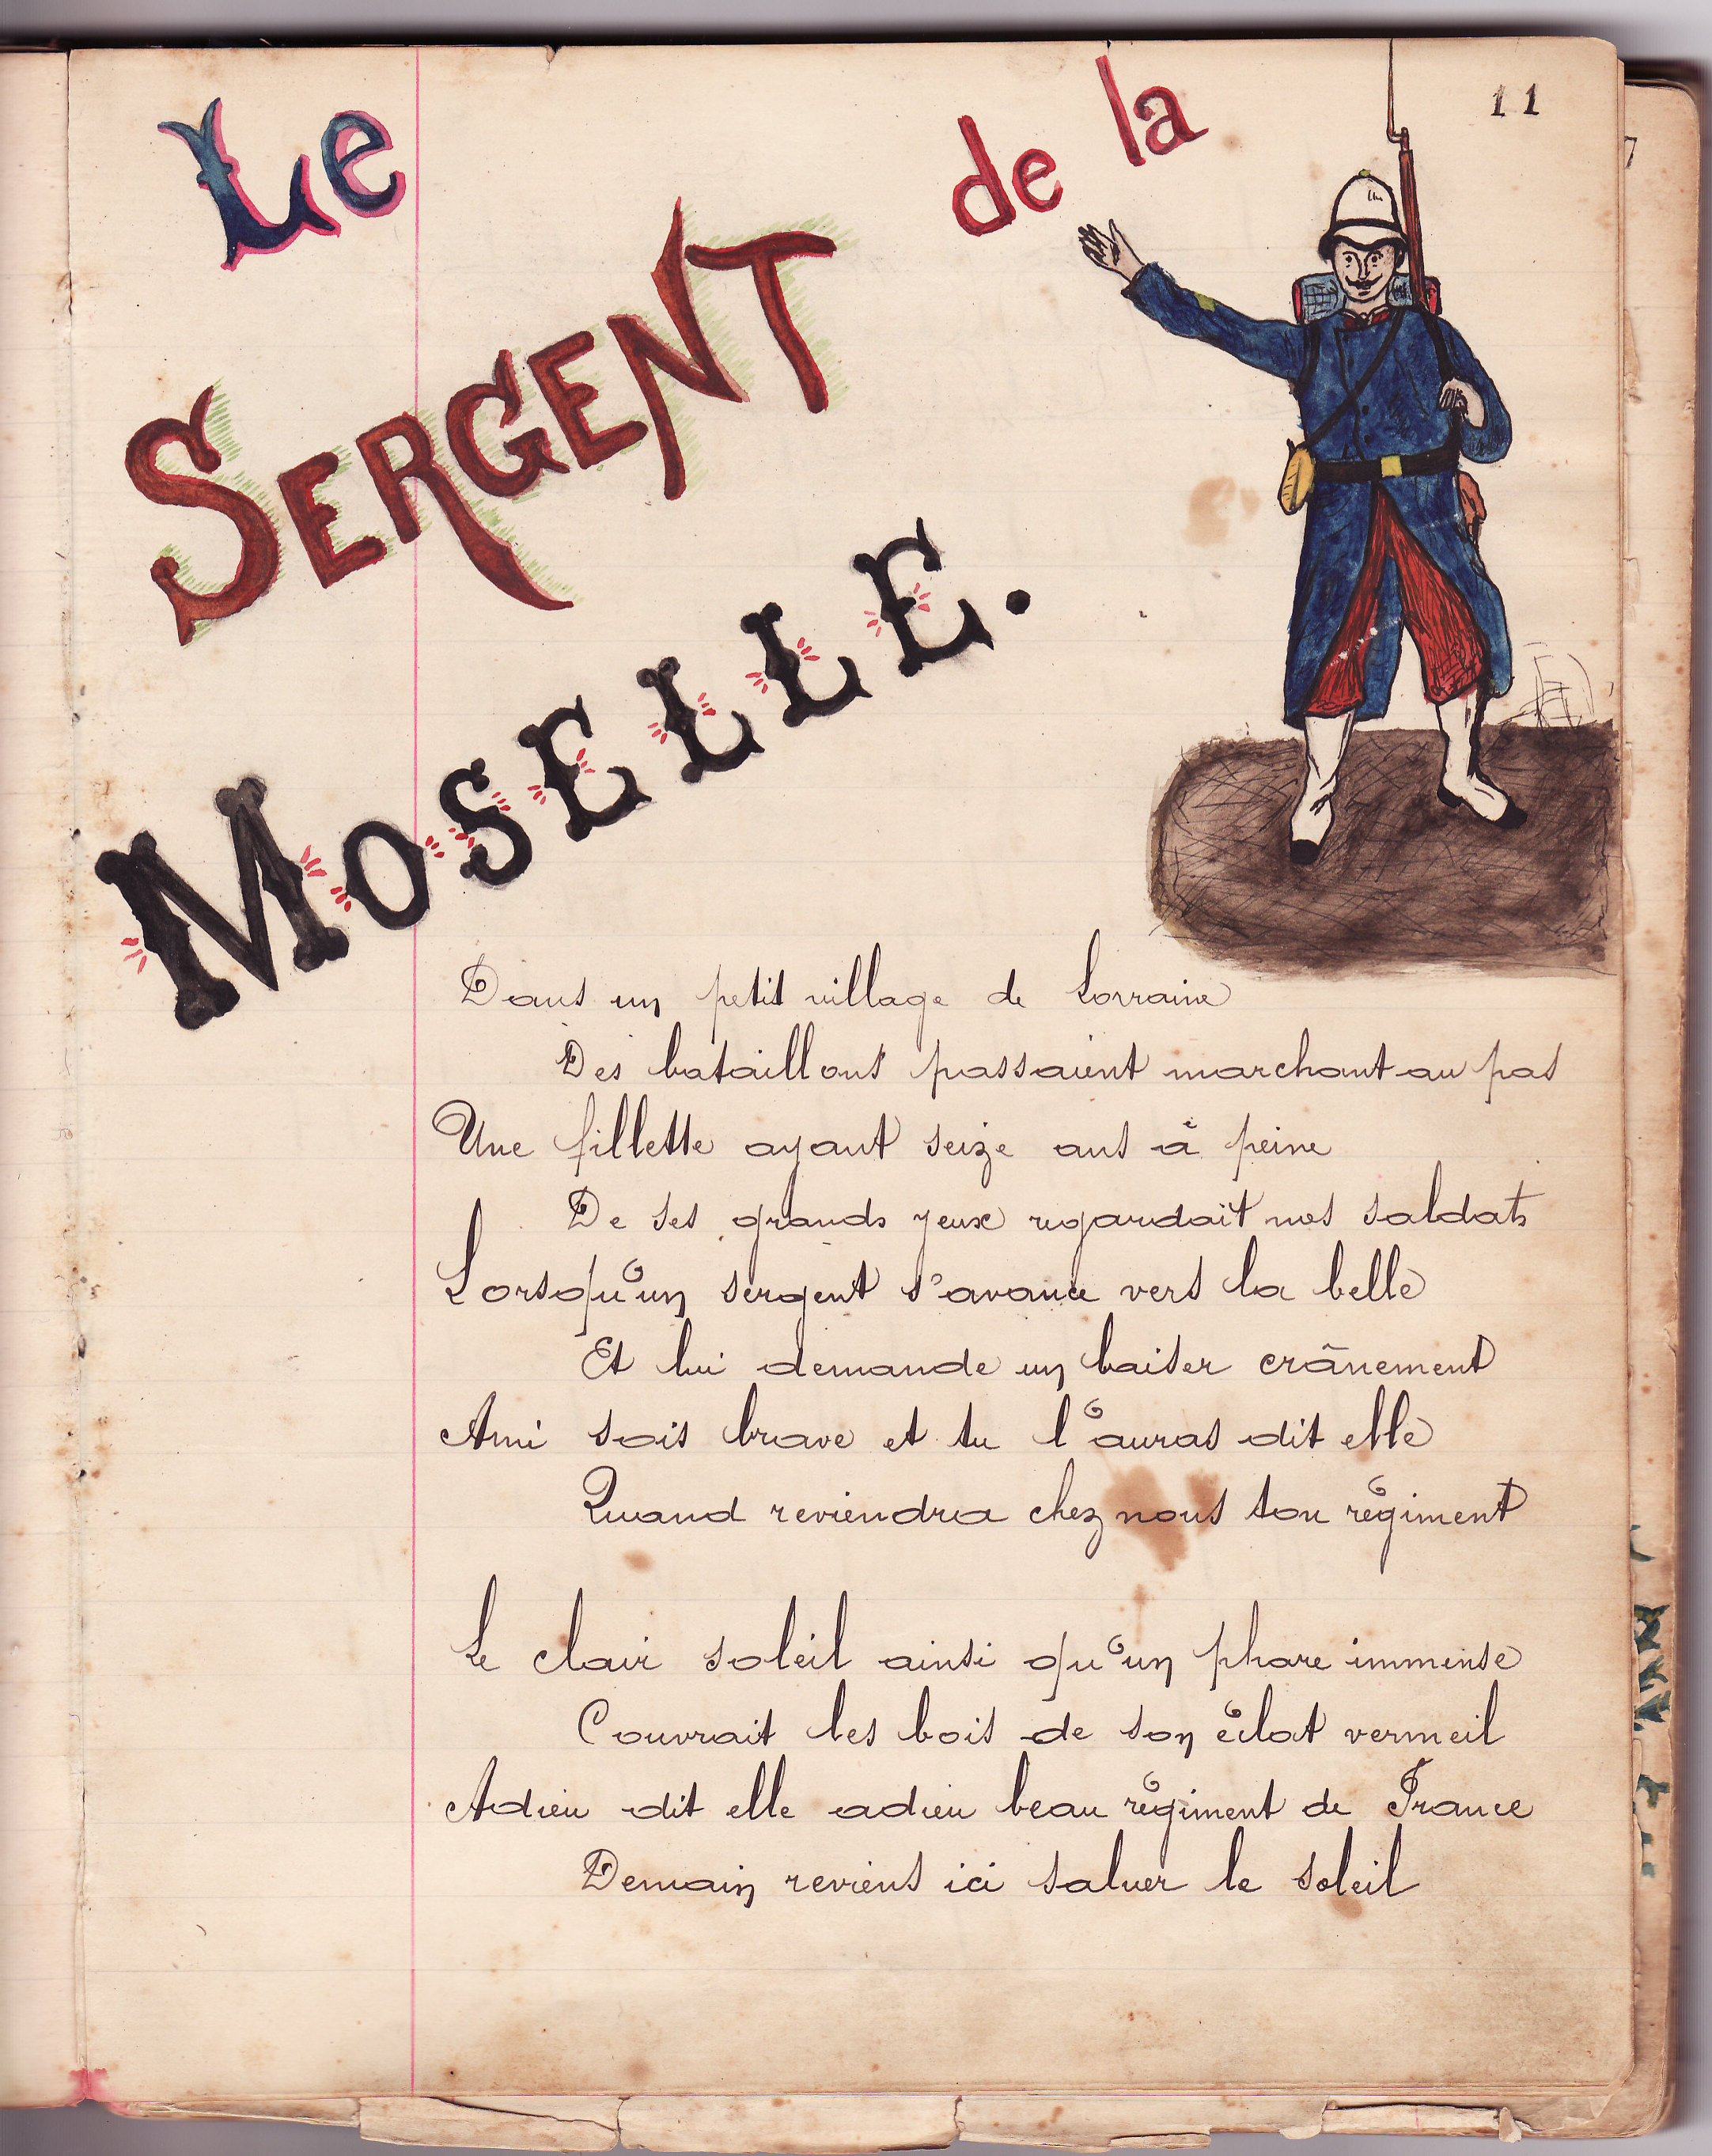 11
Le
SERGENT
de la
MOSELLE.
Dans un petit village de Lorraine
Des bataillons passaient marchant au pas
Une fillette ayant seize ans à peine
De ses grands yeux regardait nos soldats
Lorsqu'un sergent s'avance vers la belle
Et lui demande un baiser crânement
Ami sois brave et tu l'auras dit elle
Quand reviendra chez nous ton régiment
Le clair soleil ainsi qu'un phare immense
Couvrait les bois de son éclat vermeil
Adieu dit elle adieu beau régiment de France
Demain reviens ici saluer le soleil
7